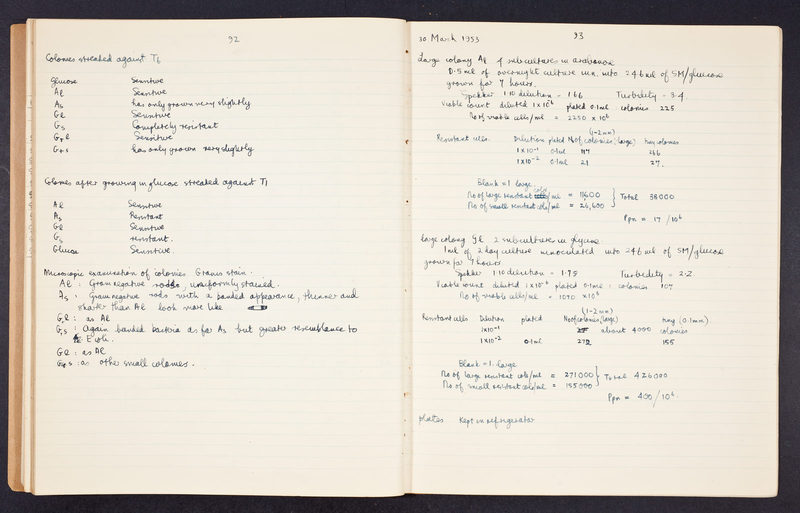 92
Colonies streaked against T6
Glucose Sensitive
Al Sensitive
As has only grown very slightly
Gl Sensitive
Gs Completely resistant
Sensitive
has only grown very slightly
Colonies after growing in glucose streaked against T1
Al Sensitive
As Resistant
Gl Sensitive
Gs resistant.
Glucose Sensitive.
Microscopic examination of colonies Grams stain.
Al : Gram negative rods, uniformly stained.
As : Gram negative rods with a banded appearance, thinner and
shorter than Al look more like
Gl : as Al
Gs : Again banded bacteria as for As but greater resemblance to
E coli.
Gl : as Al
: as other small colonies.
93
30 March 1953
Large colony Al 4 subcultures in arabinose
0.5 ml of overnight culture inn. into 24.6 ml of SM/glucose
grown for 7 hours.
Spekker 1:10 dilution = 1.66 Turbidity = 3.4.
Viable count diluted 1x10⁶ plated 0.1ml colonies 225
No of viable cells/ml = 2250 x 10⁶
(1-2mm)
Resistant cells. Dilution plated No of colonies (large) tiny colonies
1x10⁻¹ 0.1ml 117 266
1x10⁻² 0.1ml 21 27.
Blank = 1 large
No of large resistant cols/ml = 11,600
No of small resistant cols/ml = 26,600 } Total 38000
Ppn = 17 /10⁶
Large colony Gl 2 subcultures in glycerol
1ml of 2 day culture innoculated into 24.6 ml of SM/glucose
grown for 7 hours
Spekker 1:10 dilution = 1.75 Turbidity = 2.2.
Viable count diluted 1x10⁻⁶ plated 0.1ml : colonies 107
No of viable cells/ml = 1070 x10⁶
(1-2mm)
Resistant cells Dilution plated No of colonies (large) tiny (0.1mm)
1x10⁻¹ about 4000 colonies
1x10⁻² 0.1ml 272 155
Blank = 1 large
No of large resistant cols/ml = 271000
No of small resistant cols/ml = 155000 } Total 426000
Ppn = 400/10⁶.
plates Kept in refrigerator